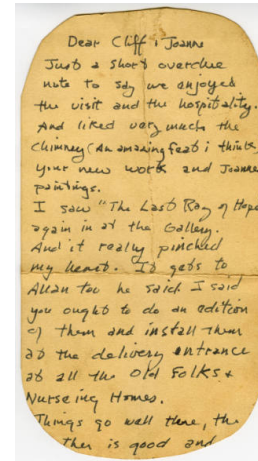 Dear Cliff & Joanne
Just a short overdue
note to say we enjoyed
the visit and the hospitality.
And liked very much the
chimney (An amazing feat i think
your new work and Joanne
paintings.
I saw "The Last Ray of Hope
again in at the Gallery.
And it really pinched
my heart. It gets to
Allan too he said I said
you ought to do an edition
of them and install them
at the delivery entrance
at all the Old Folks &
Nurseing Homes.
Things go well there, the
ther is good and